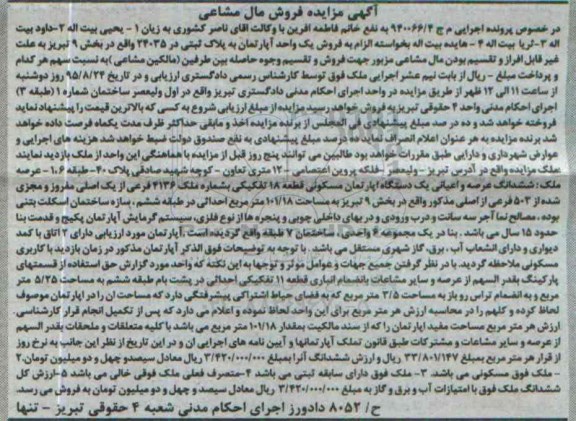 آگهی مزایده فروش مال مشاعی
در خصوص پرونده اجرایی م ج ۹۴۰۰۶۶/۴ به نفع خانم فاطمه آفرین با وکالت آقای ناصر کشوری به زیان ۱ - یحیی بیت اله ۲-داود بیت
اله ۳-ثریا بیت اله ۴ - هایده بیت اله بخواسته الزام به فروش یک واحد آپارتمان به پلاک ثبتی در ۲۴۰۳۵ واقع در بخش ۹ تبریز به علت
غیر قابل افراز و تقسیم بودن مال مشاعی مزبور جهت فروش و تقسیم وجوه حاصله بین طرفین (مالکین مشاعی )به نسبت سهم هر کدام
و پرداخت مبلغ - ریال از بابت نیم عشر اجرایی ملک فوق توسط کارشناس رسمی دادگستری ارزیابی و در تاریخ ۹۵/۸/۲۴ روز دوشنبه
از ساعت ۱۱ الی ۱۲ ظهر از طریق مزایده در واحد اجرای احکام مدنی دادگستری تبریز واقع در اول ولیعصر ساختمان شماره ۱ (طبقه ۳)
اجرای احکام مدنی واحد ۴ حقوقی تبریز به فروش خواهد رسید مزایده از مبلغ ارزیابی شروع به کسی که بالاترین قیمت را پیشنهاد نماید
فروخته خواهد شد و ده در صد مبلغ پیشنهادی فی المجلس از برنده مزایده اخذ و مابقی حداکثر ظرف مدت یکماه فرصت داده خواهد
شد برنده مزایده به هر عنوان اعلام انصراف نماید ده درصد مبلغ پیشنهادی به نفع صندوق دولت ضبط خواهد شد هزینه های اجرایی و
عوارض شهرداری و دارایی طبق مقررات خواهد بود طالبین می توانند پنج روز قبل از مزایده با هماهنگی این واحد از ملک بازدید نمایند
:ملک مزایده واقع در آدرس تبریز - ولیعصر -فلکه پروین اعتصامی - ۱۲ متری تعاون - کوچه شهید صادقی پلاک ۴۰-طبقه ۱.۶- عرصه
ملک: ششدانگ عرصه و اعیانی یک دستگاه آپارتمان مسکونی قطعه ۱۸ تفکیکی بشماره ملک ۴۱۳۶ فرعی از یک اصلی مفروز و مجزی
شده از ۵۰۳ فرعی از اصلی مذکور واقع در بخش ۹ تبریز به مساحت ۱۰۱/۱۸ متر مربع احداثی در طبقه ششم ،سازه ساختمان اسکلت بتنی
بوده ،مصالح نما آجر سه سانت و درب ورودی و دربهای داخلی چوبی و پنجره ها از نوع فلزی، سیستم گرمایش آپارتمان پکیچ و قدمت بنا
حدود ۱۵ سال می باشد . بنا در یک مجموعه ۶ واحدی در ساختمان ۷ طبقه واقع گردیده است.آپارتمان مورد ارزیابی دارای ۲ اتاق با کمد
دیواری و دارای انشعاب آب ، برق، گاز شهری مستقل می باشد . با توجه به توضیحات فوق الذکر آپارتمان مذکور در زمان بازدید با کاربری
مسکونی ملاحظه گردید. با در نظر گرفتن جمیع جهات و عوامل موثر و توجها به این نکته که واحد مورد گزارش حق استفاده از قسمتهای
پارکینگ بقدر السهم از عرصه و سایر مشاعات بانضمام انباری قطعه ۱۱ تفکیکی احداثی در پشت بام طبقه ششم به مساحت ۵/۲۵ متر
مربع و به انضمام تراس رو باز به مساحت ۳/۵ متر مربع که به فضای حیاط اشتراکی پیشرفتگی دارد که مساحت ان را در آپارتمان موصوف
لحاظ کرده و کلهم را در محاسبه ارزش هر متر مربع برای این واحد لحاظ نموده و اعلام می دارد که پس از تکمیل انجام قرار کارشناسی.
ارزش هر متر مربع مساحت مفید آپارتمان را که از سند مالکیت بمقدار ۱۰۱/۱۸ متر مربع می باشد با کلیه متعلقات و ملحقات بقدر السهم
از عرصه و سایر مشاعات و مشترکات طبق قانون تملک آپارتمانها و آیین نامه های اجرایی ان و در این تاریخ از نظر این جانب به نرخ روز
از قرار هر متر مربع بمبلغ ۳۳/۸۰۱/۱۴۷ ریال و ارزش ششدانگ آنرا بمبلغ ۳/۴۲۰/۰۰۰/۰۰۰ ریال معادل سیصد و چهل و دو میلیون تومان.۲
- ملک فوق مسکونی می باشد. ۳- ملک فوق دارای سابقه ثبتی می باشد ۴-متصرف فعلی ملک فوقی خالی می باشد ۵-ارزش کل
ششدانگ ملک فوق با امتیازات آب و برق و گاز به مبلغ ۳/۴۲۰/۰۰۰/۰۰۰ ریال معادل سیصد و چهل و دو میلیون تومان به فروش می رسد.
ح/ ۸۰۵۲ دادورز اجرای احکام مدنی شعبه ۴ حقوقی تبریز - تنها